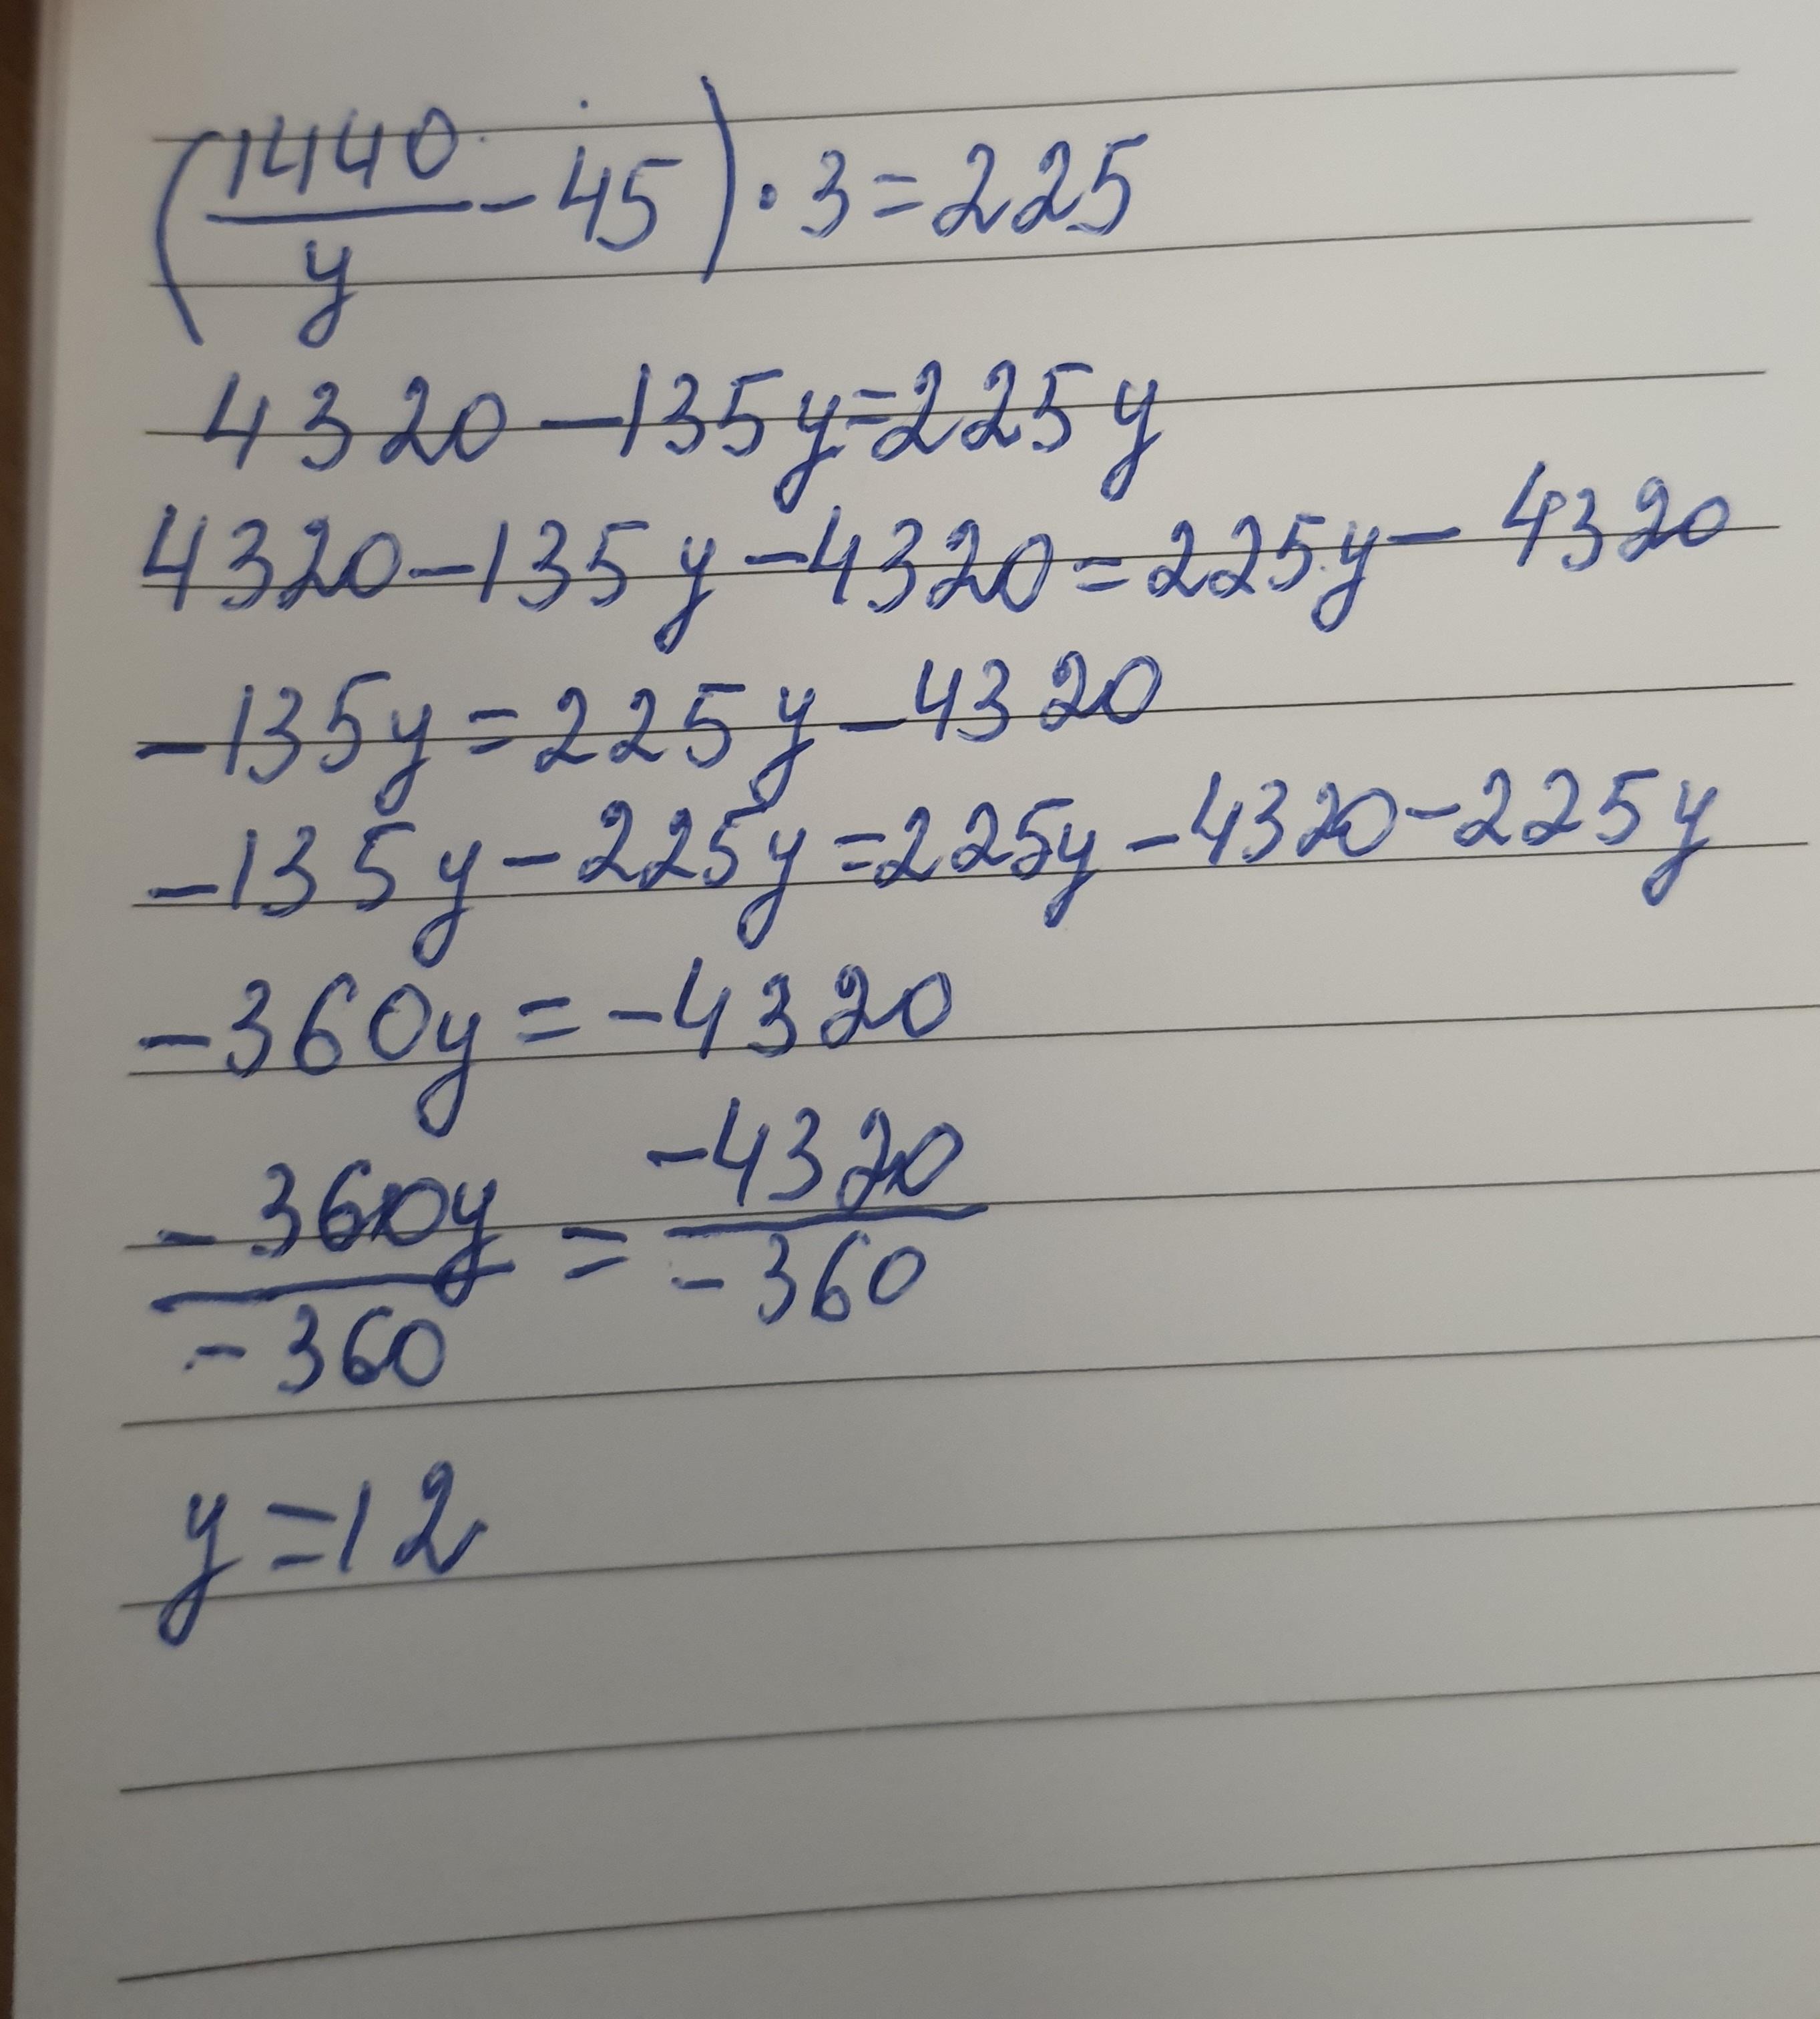 (1440/y - 45) · 3 = 225
4320 - 135y = 225y
4320 - 135y - 4320 = 225y - 4320
-135y = 225y - 4320
-135y - 225y = 225y - 4320 - 225y
-360y = -4320
-360y/-360 = -4320/-360
y = 12